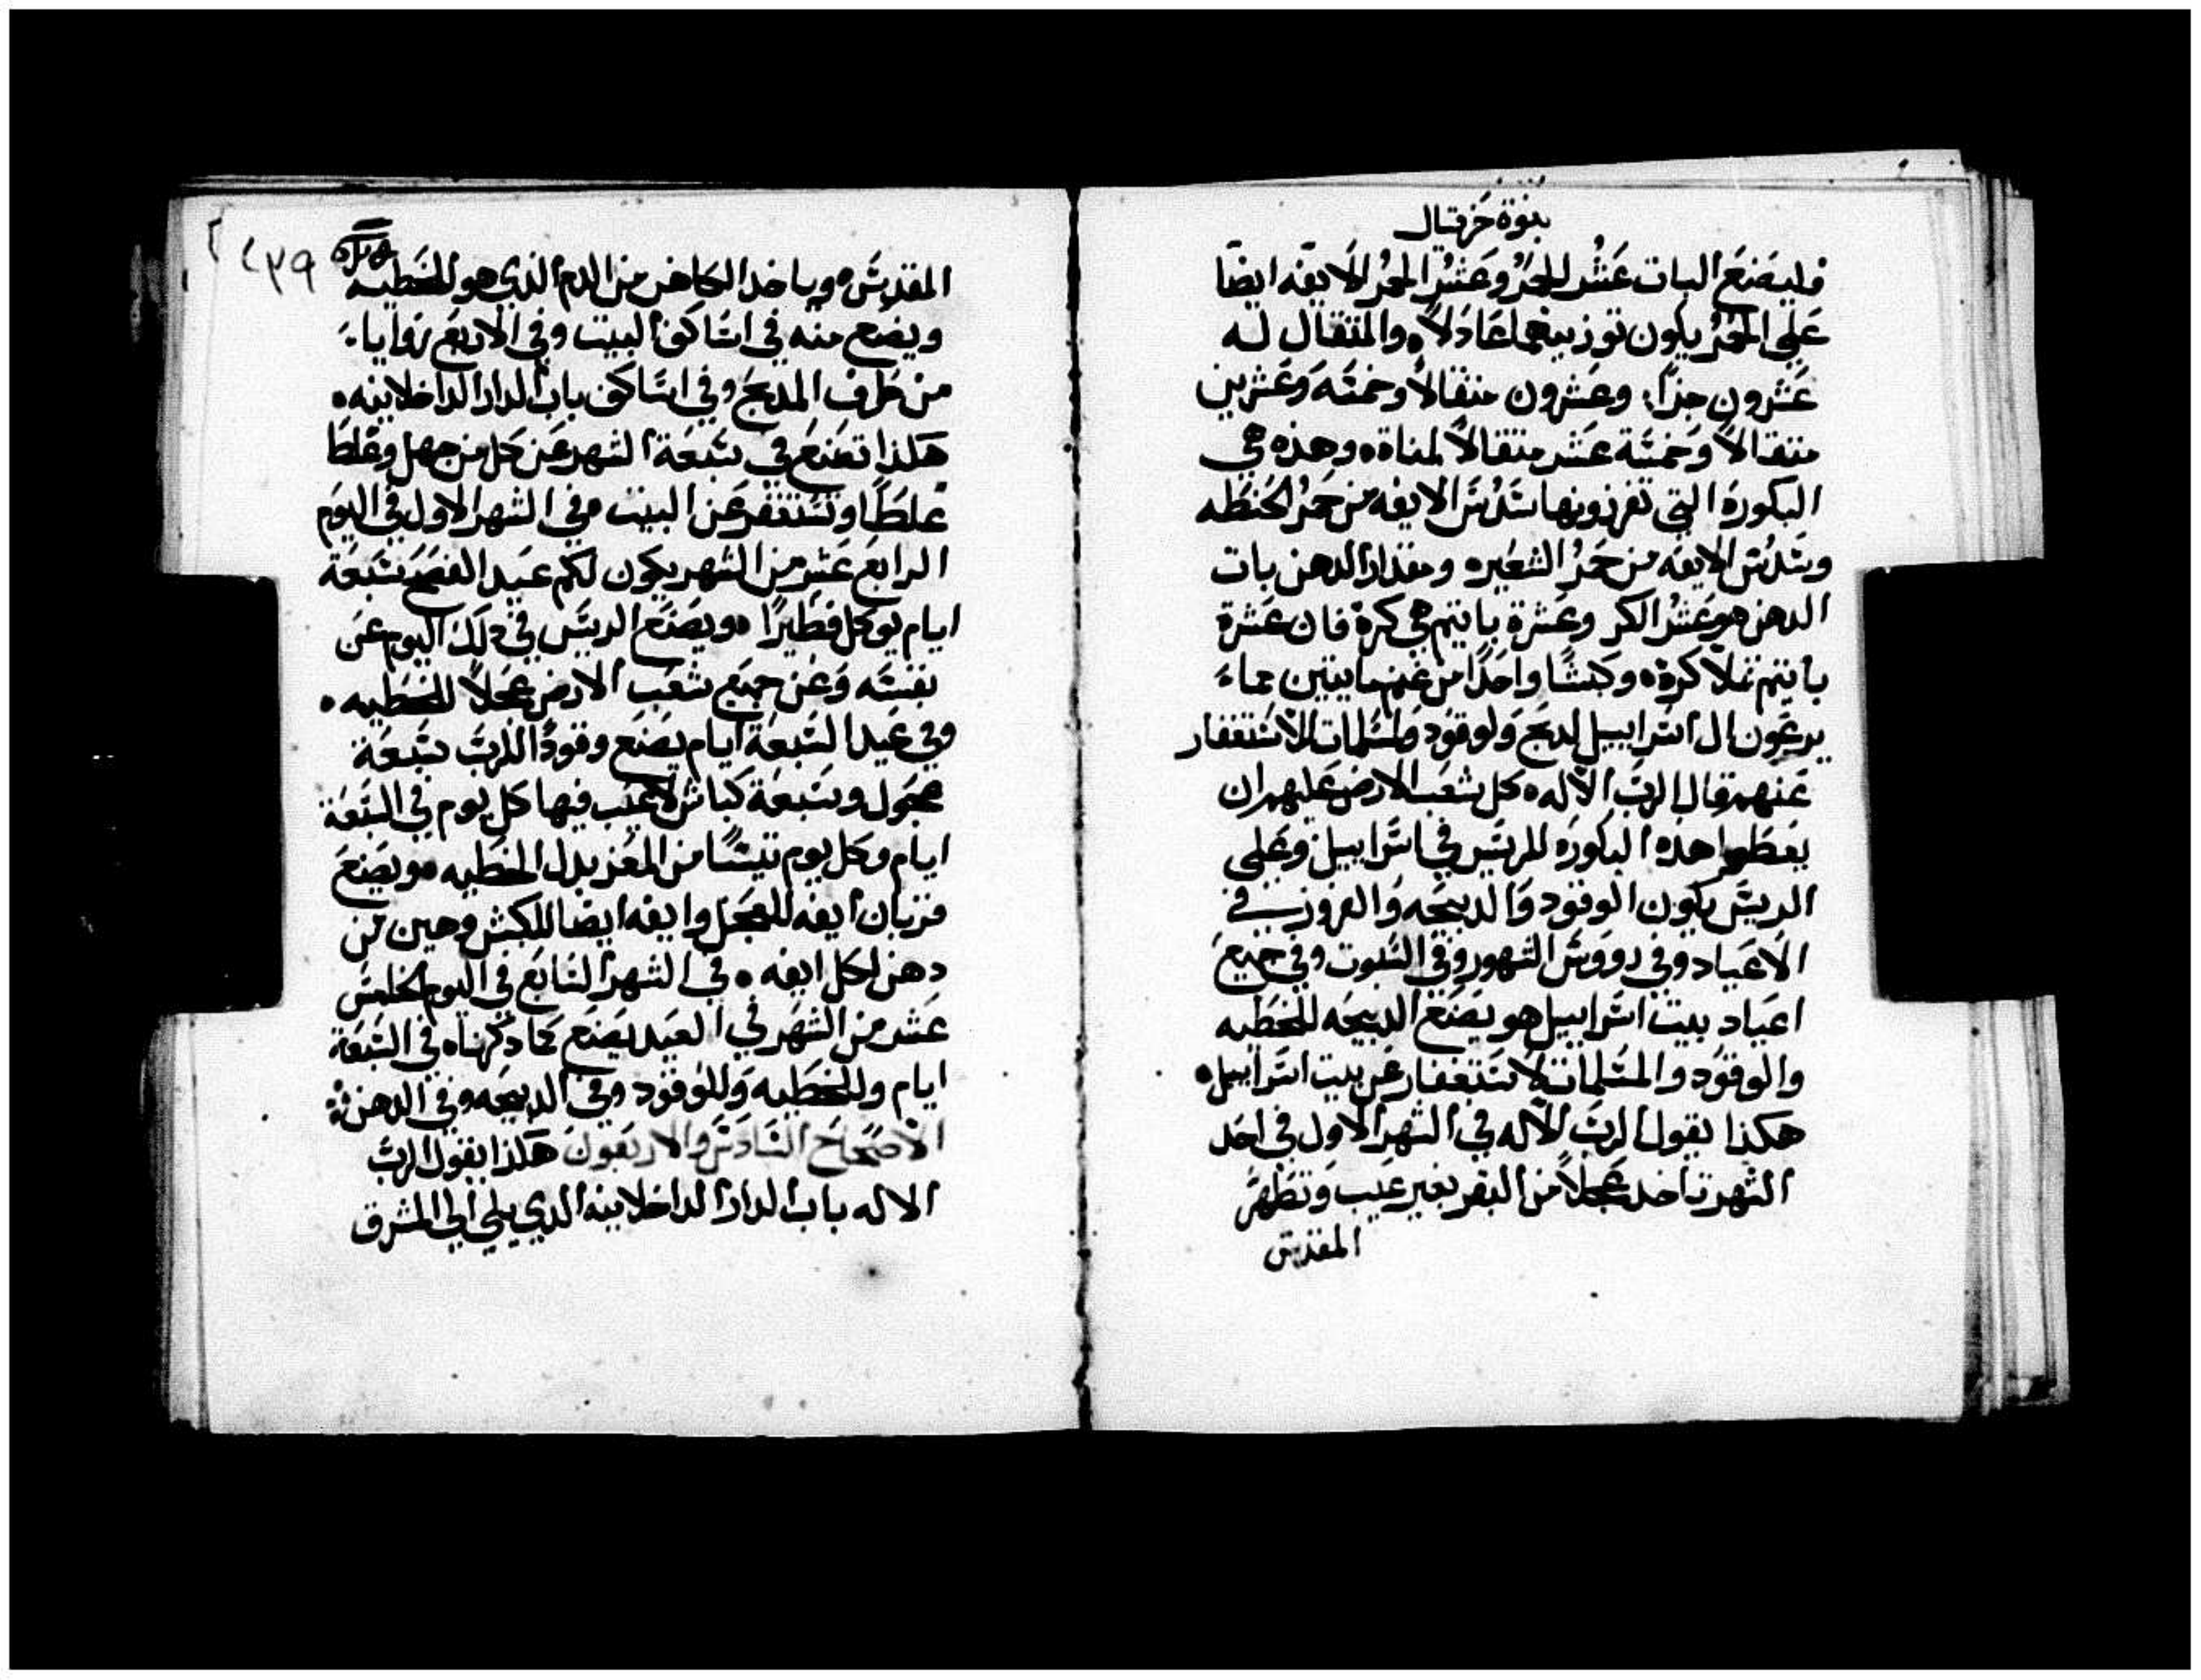 نبوة حزقيال
فليصنع البات عشر الحمر وعشر الحمر الايفه ايضا
على الحمر يكون توزينهما عادلاً والمتقال له
عشرون جذاً وعشرون متقالاً وخمسة وعشرين
متقالاً وخمسة عشر متقالاً لمناة وهذه هي
البكورة التي تفرزونها سدس الايفه من حمر الحنطه
وسدس الايفه من حمر الشعيره ومقدار الدهن بات
الدهن هو عشر الكر وعشرة باتيم هي كرة فان عشرة
باتيم تملا كرة وكبشًا واحدًا من غنم مايتين مما
يرعون ال اسراييل لدبح ولوقود ولسلمات للاستغفار
عنهم قال الرب الاله كل شعب الارض عليهم ان
يعطوا هذه البكوره للريس في اسراييل وعلى
الريس يكون الوقود والدبيحه والفروز في
الاعياد وفي رووس الشهور وفي السبوت وفي جميع
اعياد بيت اسراييل هو يصنع الدبيحه للخطيه
والوقود والمسلمات لاستغفار عن بيت اسراييل
هكذا يقول الرب الاله في الشهر الاول في احد
الشهر تاخد عجلاً من البقر بغير عيب وتطهر
المقدس
٤٣٩
المقدس وياخد الكاهن من الدم الذي هو للخطيه
ويضع منه في اساكف البيت وفي الاربع زوايا
من طرف المدبح وفي اساكف باب الدار الداخلانيه
هكذا تصنع في سبعة الشهر عن كل من جهل وغلط
غلطًا وتستغفر عن البيت وفي الشهر الاول في اليوم
الرابع عشر من الشهر يكون لكم عيد الفصح سبعة
ايام يوكل فطيرًا ويصنع الريس في دلك اليوم عن
نفسه وعن جميع شعب الارض عجلاً للخطيه
وفي عيد السبعة ايام يصنع وقودًا للرب سبعة
عجول وسبعة كباش لا عيب فيها كل يوم في السبعة
ايام وكل يوم تيسًا من المعز بدل الخطيه ويصنع
قربان ايفه للعجل وايفه ايضا للكبش وهين من
دهن لكل ايفه في الشهر السابع في اليوم الخامس
عشر من الشهر في العيد يصنع كما دكرناه في السبعة
ايام وللخطيه وللوقود وفي الدبيحه وفي الدهن
الاصحاح السادس والاربعون هكذا يقول الرب
الاله باب الدار الداخلانيه الدي يلي الي المشرق